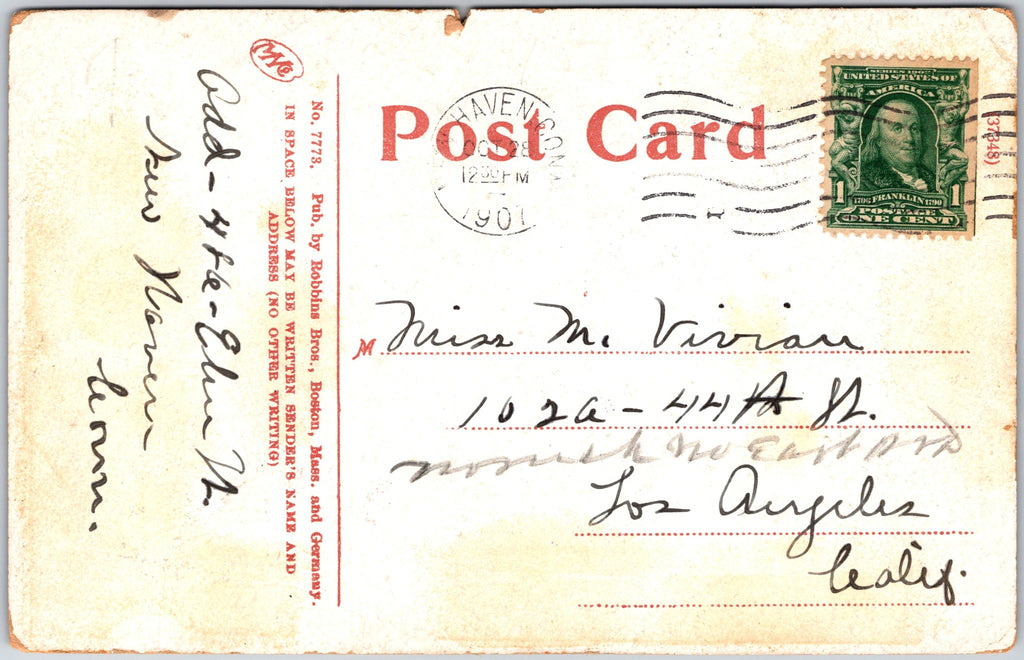 MNCo
No. 7773. Pub. by Robbins Bros., Boston, Mass. and Germany.
IN SPACE BELOW MAY BE WRITTEN SENDER'S NAME AND
ADDRESS (NO OTHER WRITING)
Add - 446 - Elm St.
New Haven
Conn.
Post Card
HAVEN CONN
OCT 28
12 00 PM
1907
SERIES 1902
UNITED STATES OF
AMERICA
1 1
1706 FRANKLIN 1790
POSTAGE
ONE CENT
37348)
Miss M. Vivian
102a - 44th St.
no East
Los Angeles
Calif.